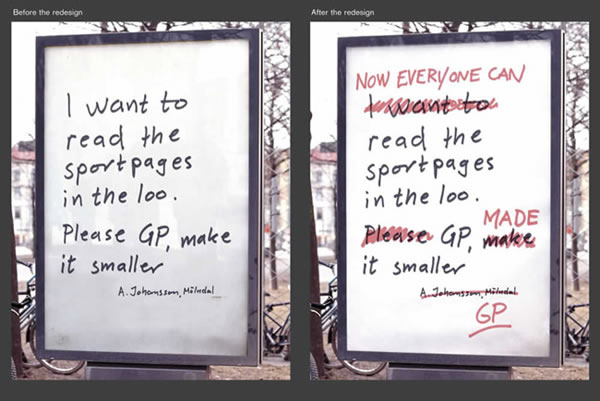 Before the redesign
I want to
read the
sportpages
in the loo.
Please GP, make
it smaller
A. Johansson, Mölndal
After the redesign
NOW EVERYONE CAN
I want to
read the
sportpages
in the loo.
MADE
Please GP, make
it smaller
A. Johansson, Mölndal
GP